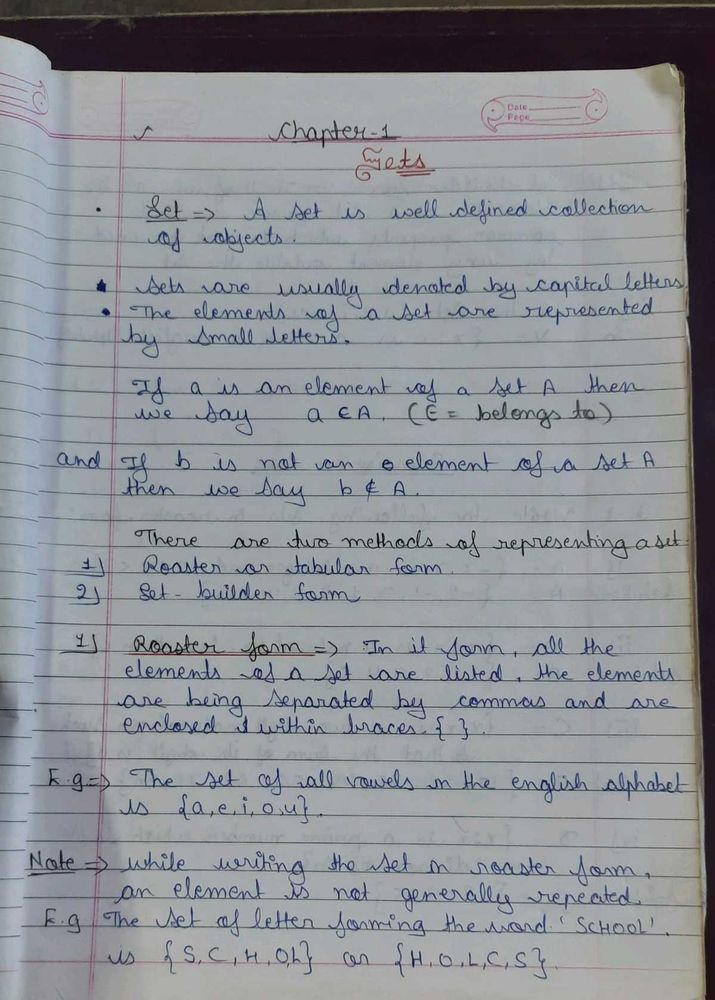 Date
Page
Chapter-1
Sets
• Set => A set is well defined collection
of objects.
• Sets are usually denoted by capital letters.
• The elements of a set are represented
by small letters.
If a is an element of a set A then
we say a ∈ A. (∈ = belongs to)
and If b is not an element of a set A
then we say b ∉ A.
There are two methods of representing a set
1) Roaster or tabular form.
2) Set-builder form
1) Roaster form => In it form, all the
elements of a set are listed, the elements
are being separated by commas and are
enclosed within braces { }.
E.g => The set of all vowels in the english alphabet
is {a, e, i, o, u}.
Note => while writing the set in roaster form,
an element is not generally repeated.
E.g The set of letter forming the word 'SCHOOL'.
is {S, C, H, O, L} or {H, O, L, C, S}.